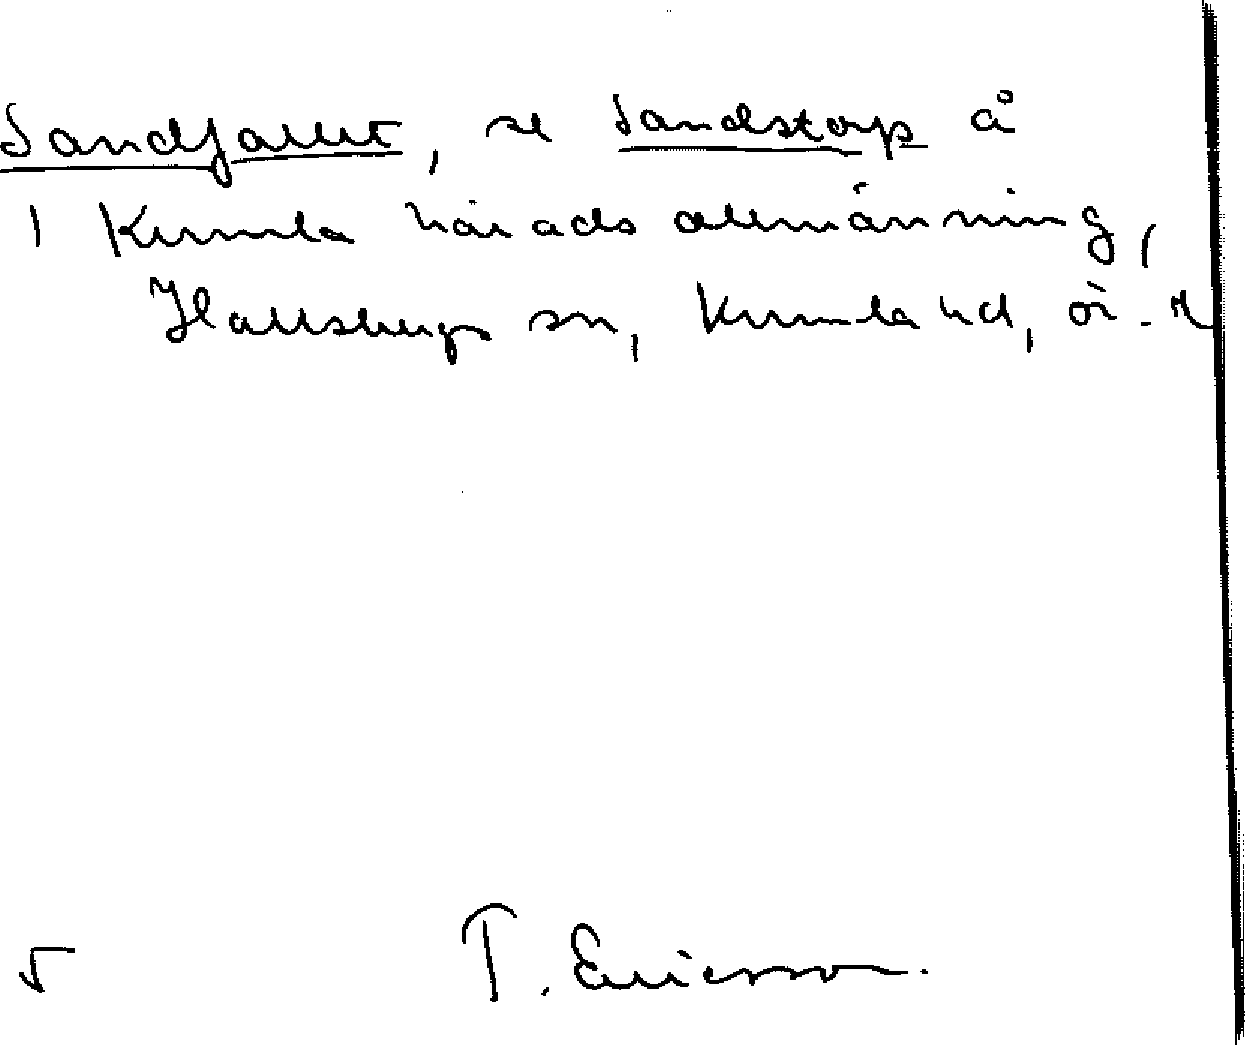 Sandfallet, se Sandstorp å
1 Kumla härads allmänning,
Hallsbergs sn, Kumla hd, Ör. l
T. Ericsson.